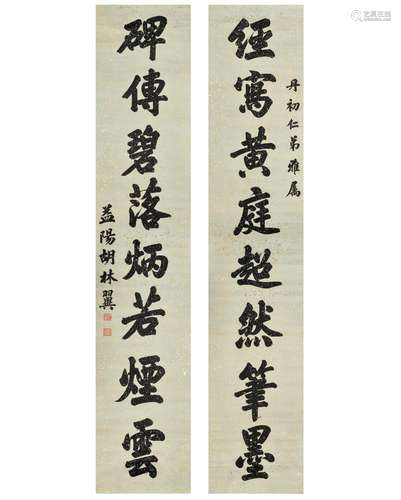 經寫黃庭超然筆墨
丹初仁弟雅属
碑傳碧落炳若煙雲
益陽胡林翼